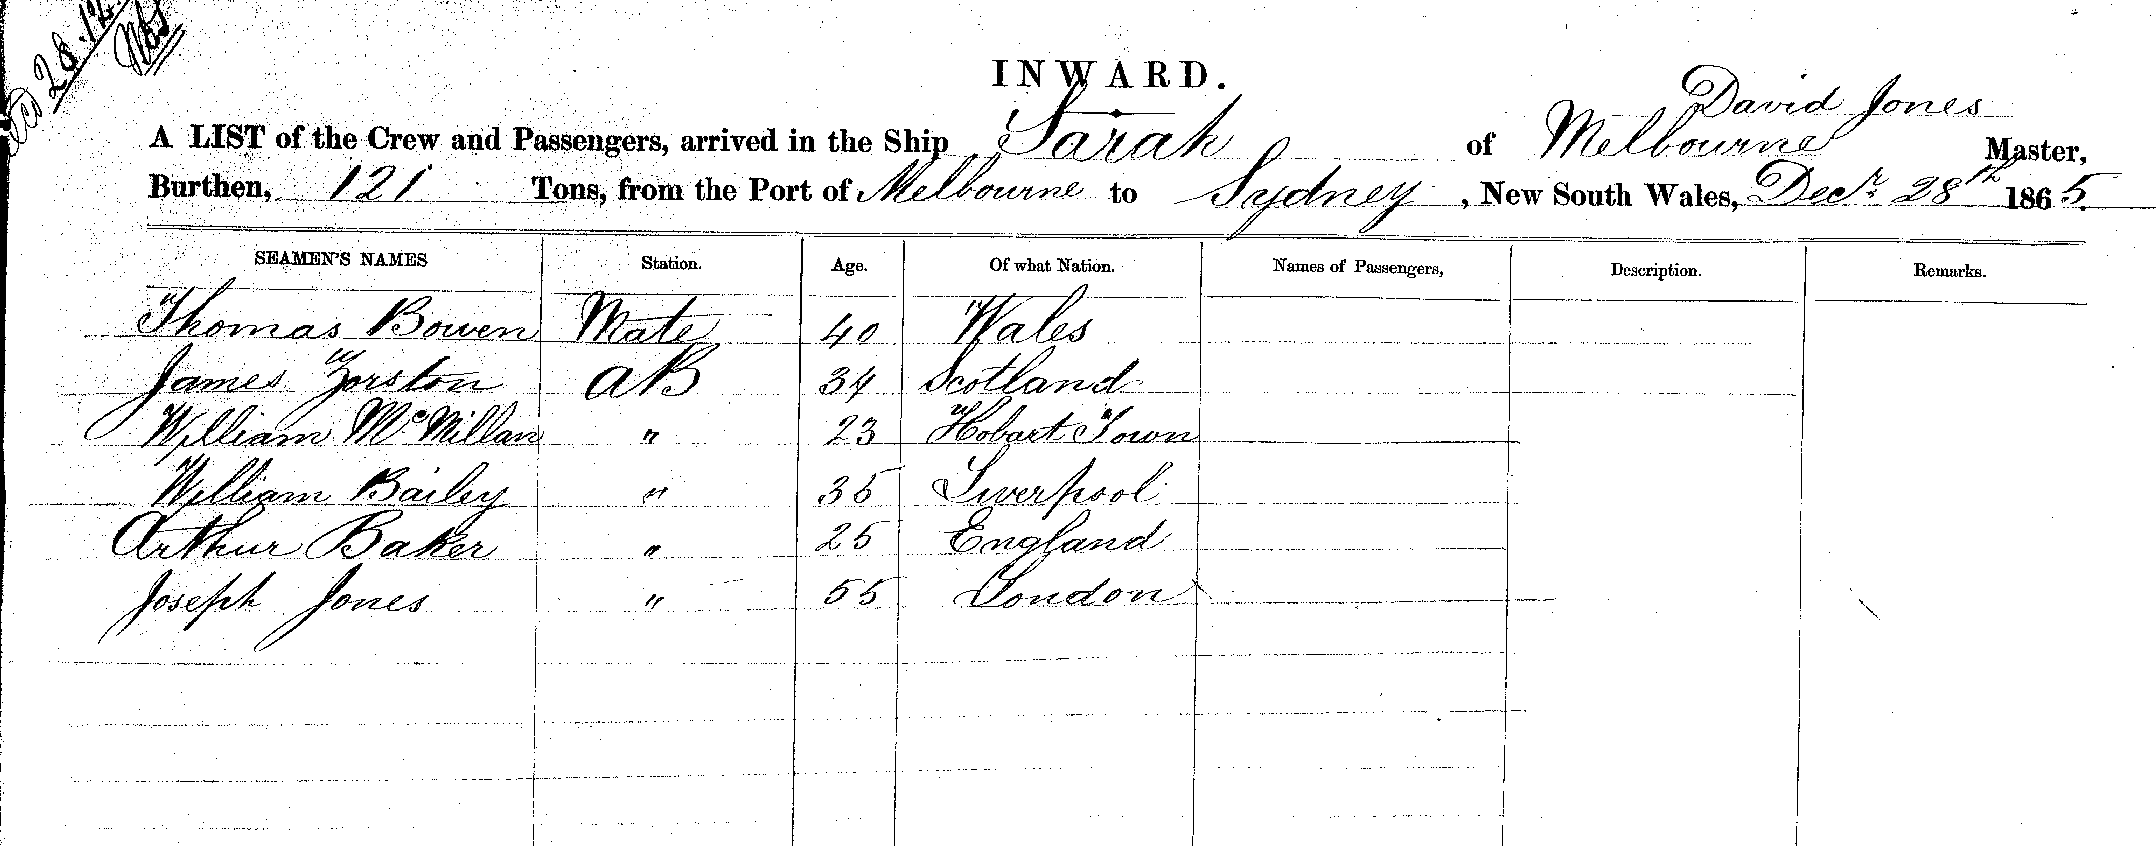 28.12
INWARD.
David Jones
A LIST of the Crew and Passengers, arrived in the Ship Sarah of Melbourne Master,
Burthen, 121 Tons, from the Port of Melbourne to Sydney, New South Wales, Decr. 28th 1865.
SEAMEN'S NAMES Station. Age. Of what Nation. Names of Passengers, Description. Remarks.
Thomas Bowen Mate 40 Wales
James Yorston AB 34 Scotland
William McMillan " 23 Hobart Town
William Bailey " 35 Liverpool
Arthur Baker " 25 England
Joseph Jones " 55 London